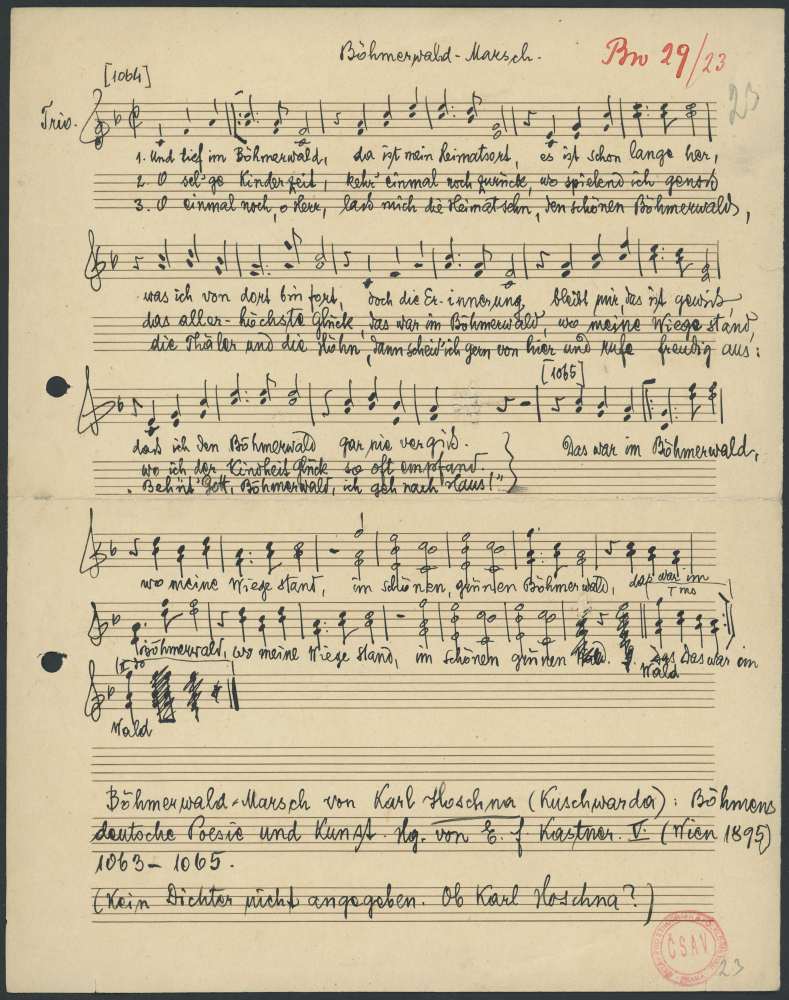 Böhmerwald-Marsch.
Bw 29/23
23
[1064]
Trio.
1. Und tief im Böhmerwald, da ist mein Heimatsort, es ist schon lange her,
2. O sel'ge Kinderzeit, kehr' einmal noch zurück, wo spielend ich genoß
3. O einmal noch, o Herr, laß mich die Heimat sehn, den schönen Böhmerwald,
was ich von dort bin fort, doch die Er-innerung bleibt mir, das ist gewiß,
das aller-höchste Glück, das war im Böhmerwald, wo meine Wiege stand,
die Thäler und die Höhn, dann scheid' ich gern von hier und rufe freudig aus:
[1065]
daß ich den Böhmerwald gar nie vergiß. Das war im Böhmerwald,
wo ich der Kindheit Glück so oft empfand.
„Behüt' Gott, Böhmerwald, ich geh nach Haus!"
wo meine Wiege stand, im schönen, grünen Böhmerwald, das war im
Böhmerwald, wo meine Wiege stand, im schönen grünen Wald. Das war im
Wald
Wald
Böhmerwald-Marsch von Karl Hoschna (Kuschwarda): Böhmens
deutsche Poesie und Kunst. Hg. von E. f. Kastner. V. (Wien 1895)
1063-1065.
(Kein Dichter nicht angegeben. Ob Karl Hoschna?)
ČSAV
23